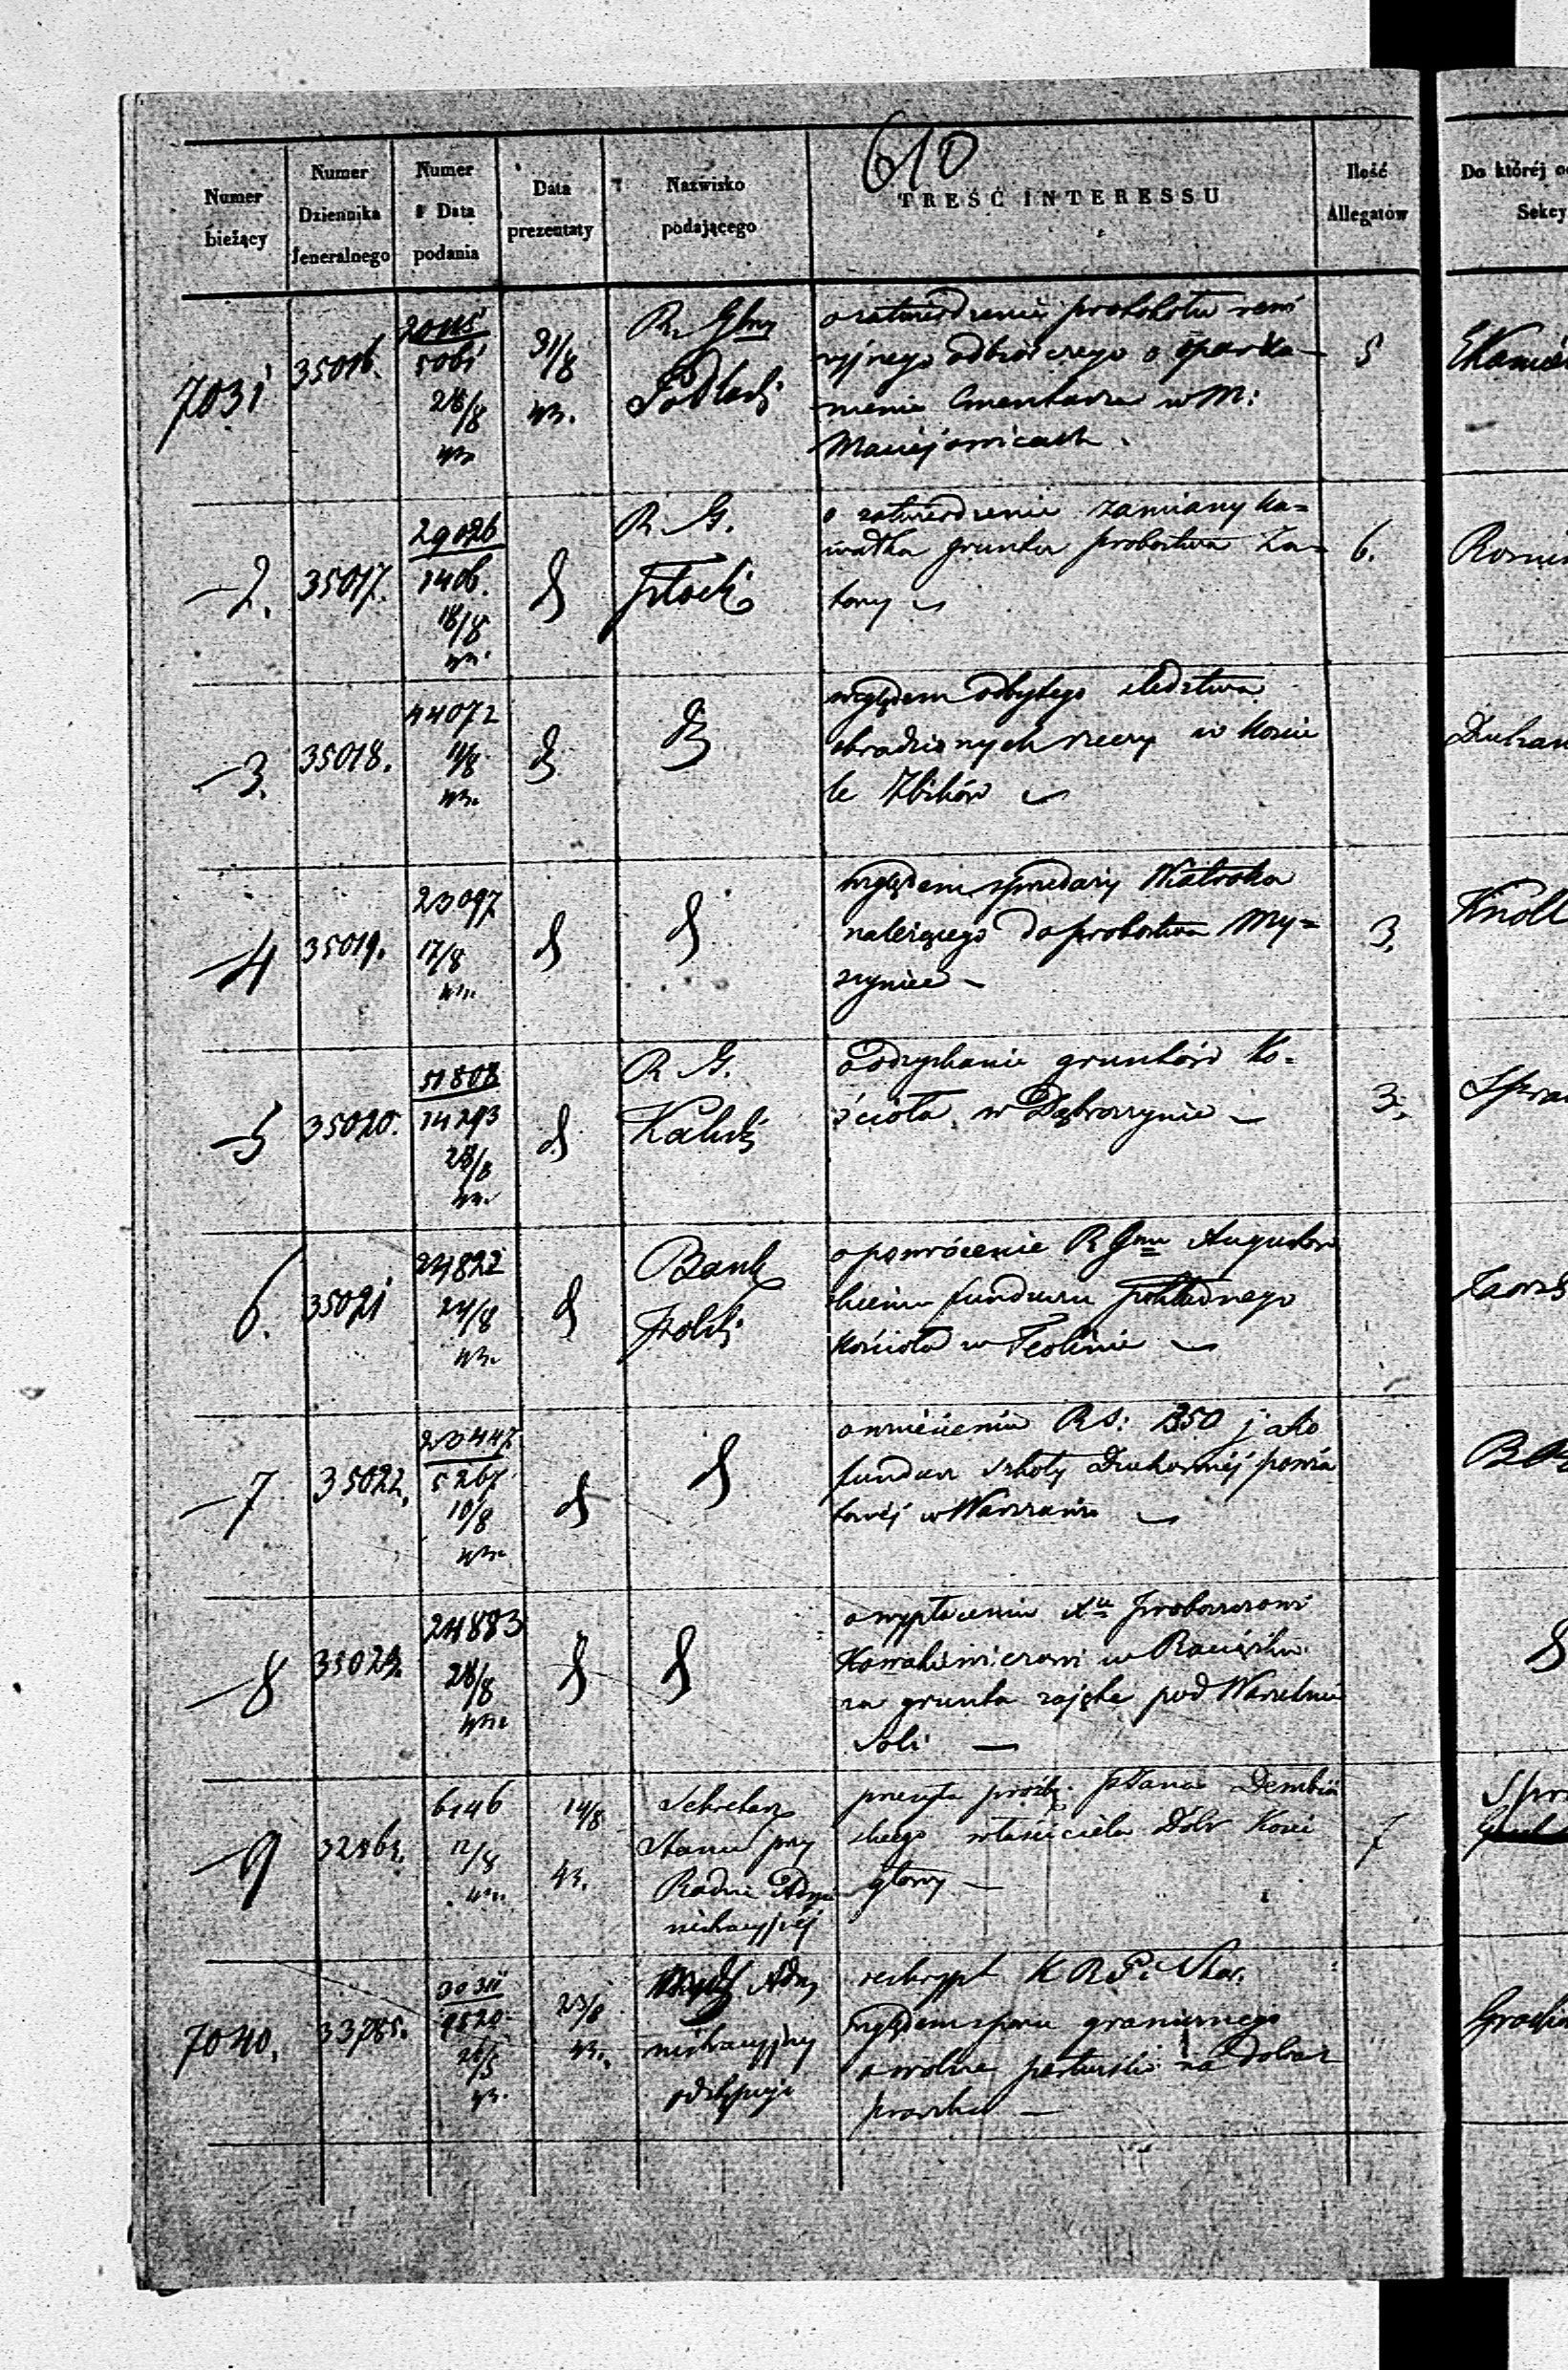 610
Numer
bieżący
Numer
Dziennika
Jeneralnego
Numer
i Data
podania
Data
prezentaty
Nazwisko
podającego
TREŚĆ INTERESSU
Ilość
Allegatów
Do któréj
Sekcy
7031
35016.
5061
28/8
43.
31/8
43.
R. Gbny
Podlaski
o zatwierdzenie protokołu rewi
zyjnego odbiorczego o oparka-
nienie Cmentarza w M:
Maciejowicach.
5
2.
35017.
29026
1406.
18/8
43.
R. G.
Płocki
o zatwierdzenie zamiany ka=
wałka gruntu probostwa Za=
tory
6.
3.
35018.
44072
11/8
43.
względem odbytego śledztwa
skradzionych rzeczy w koście
le Zbików
4
35019.
23097
17/8
43.
względem sprzedaży Wiatraka
należącego do probostwa My=
szyniec -
3.
Knoll
5
35020.
51808
14293
28/8
43.
R. G.
Kaliski
o odzyskanie gruntów Ko=
ścioła w Dąbroszynie -
3.
6.
35021
24822
24/8
43.
Bank
Polski
o powrócenie R Gmu Augustow
skiemu funduszu pokładnego
Kościoła w Teolinie
7
35022.
20447
5267
10/8
43.
o wniesieniu Rs: 350 jako
fundusz szkoły Duchownéj powia
towéj w Warszawie
8
35023.
24883
28/8
43.
o wypłaceniu Xu Proboszczowi
w Raciążku
za grunta zajęte pod Warzelnię
Soli —
9
6146
12/8
43.
14/8
43.
Sekretarz
Stanu przy
Radzie Admi
nistracyjnéj
przesyła prośbę Pana Dembiń
skiego właściciela Dóbr Kozie
głowy —
7
7040.
33785.
9520
43.
23/8
43.
Wydz Admi
nistracyjny
odstępuje
reskrypt K R P i Skar.
względem sporu granicznego
o wolne pastwiska na dobrach